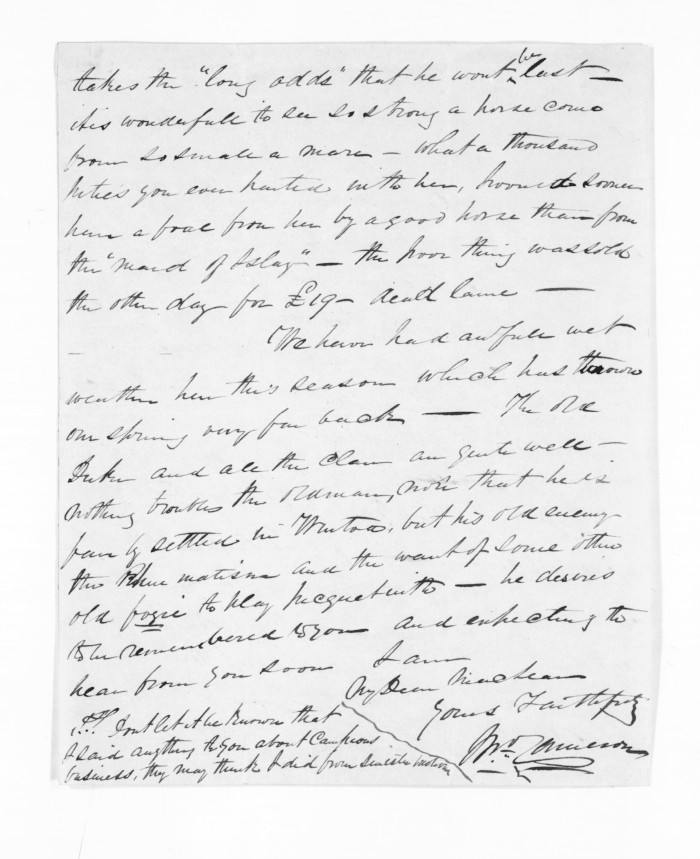 takes the "long odds" that he wont be last —
it is wonderfull to see so strong a horse come
from so small a mare — What a thousand
pities you ever parted with her, I would sooner
have a foal from her by a good horse than from
the "Maid of Islay" — the poor thing was sold
the other day for £19 — dead lame —
We have had awfull wet
weather here this season which has thrown
our spring very far back — The old
Duke and all the Clan are quite well —
nothing troubles the oldman, now that he is
fairly settled in, but his old enemy
the Rhumatism and the want of some other
old fogie to play picquet with — he desires
to be remembered to you and expecting to
hear from you soon I am
My Dear Maclean
Yours Faithfully
Cameron
Dont let it be known that
I said anything to you about
business, they may think I did from sinister motives